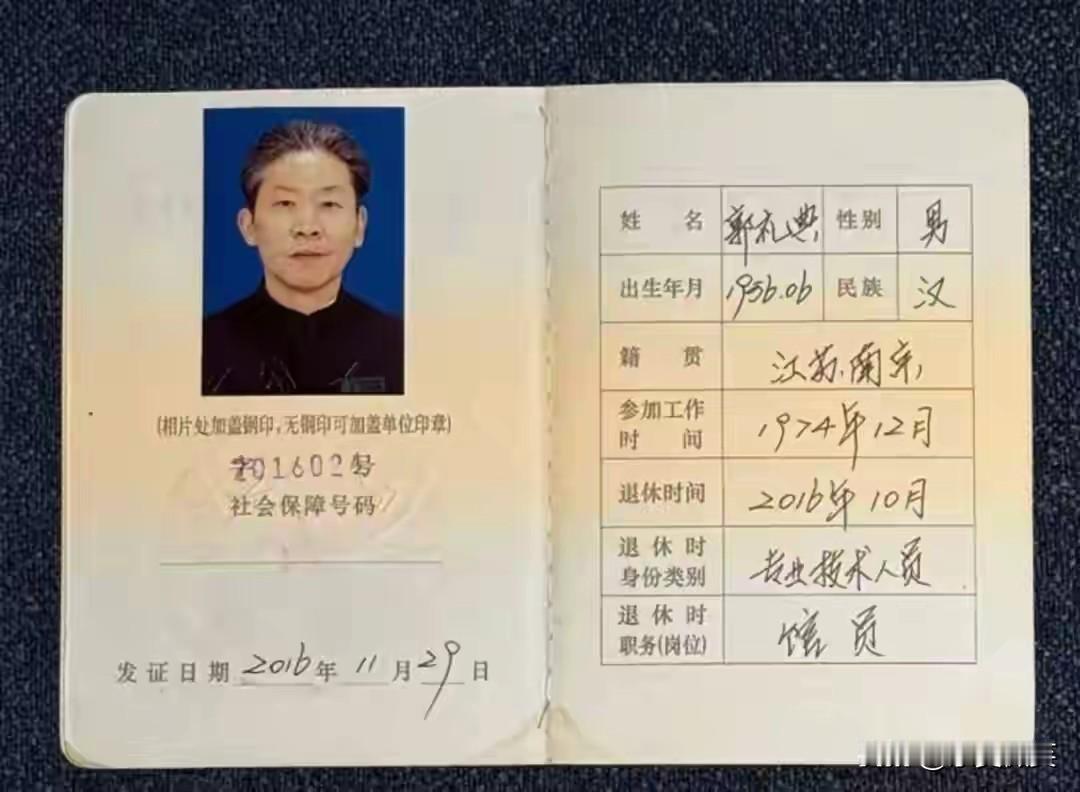 (相片处加盖钢印,无钢印可加盖单位印章)
201602号
社会保障号码
发证日期 2016年 11 月 29 日
姓名 郭礼典 性别 男
出生年月 1956.06 民族 汉
籍贯 江苏.南京
参加工作
时间 1974年12月
退休时间 2016年10月
退休时
身份类别 专业技术人员
退休时
职务(岗位) 馆员